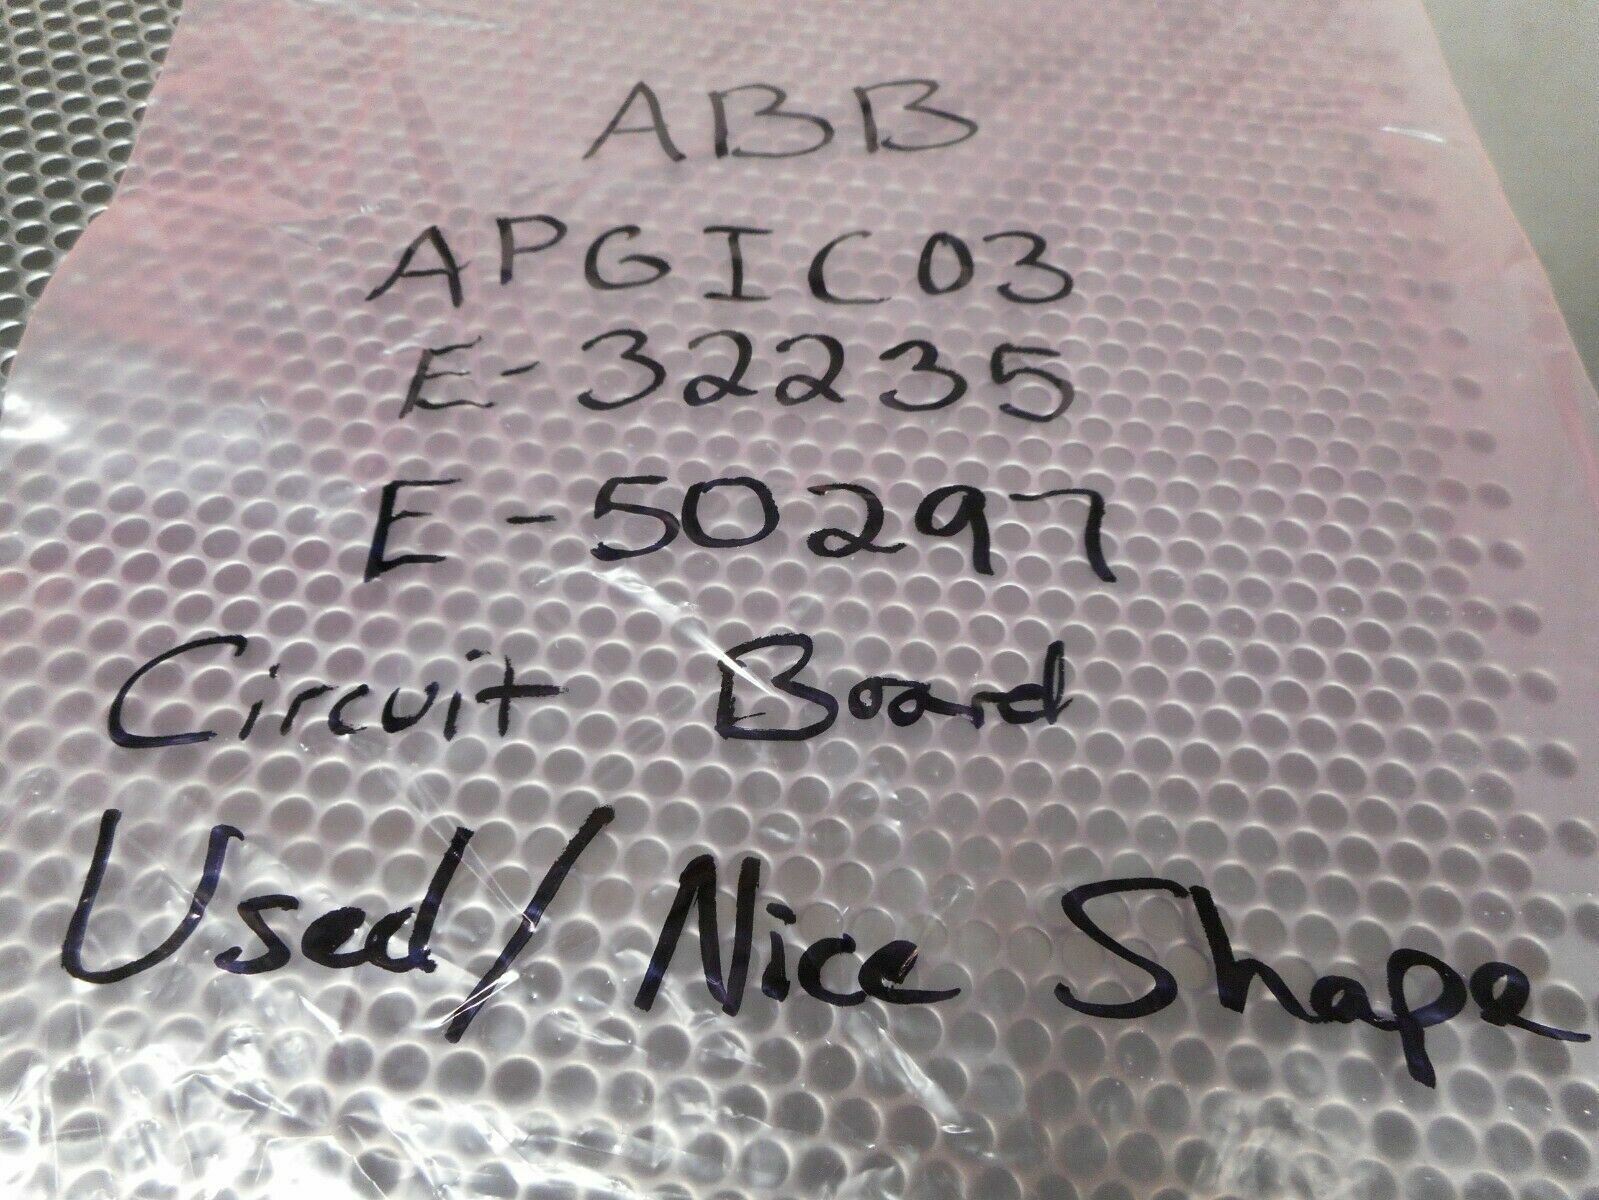 ABB
APGIC03
E-32235
E-50297
Circuit Board
Used/Nice Shape